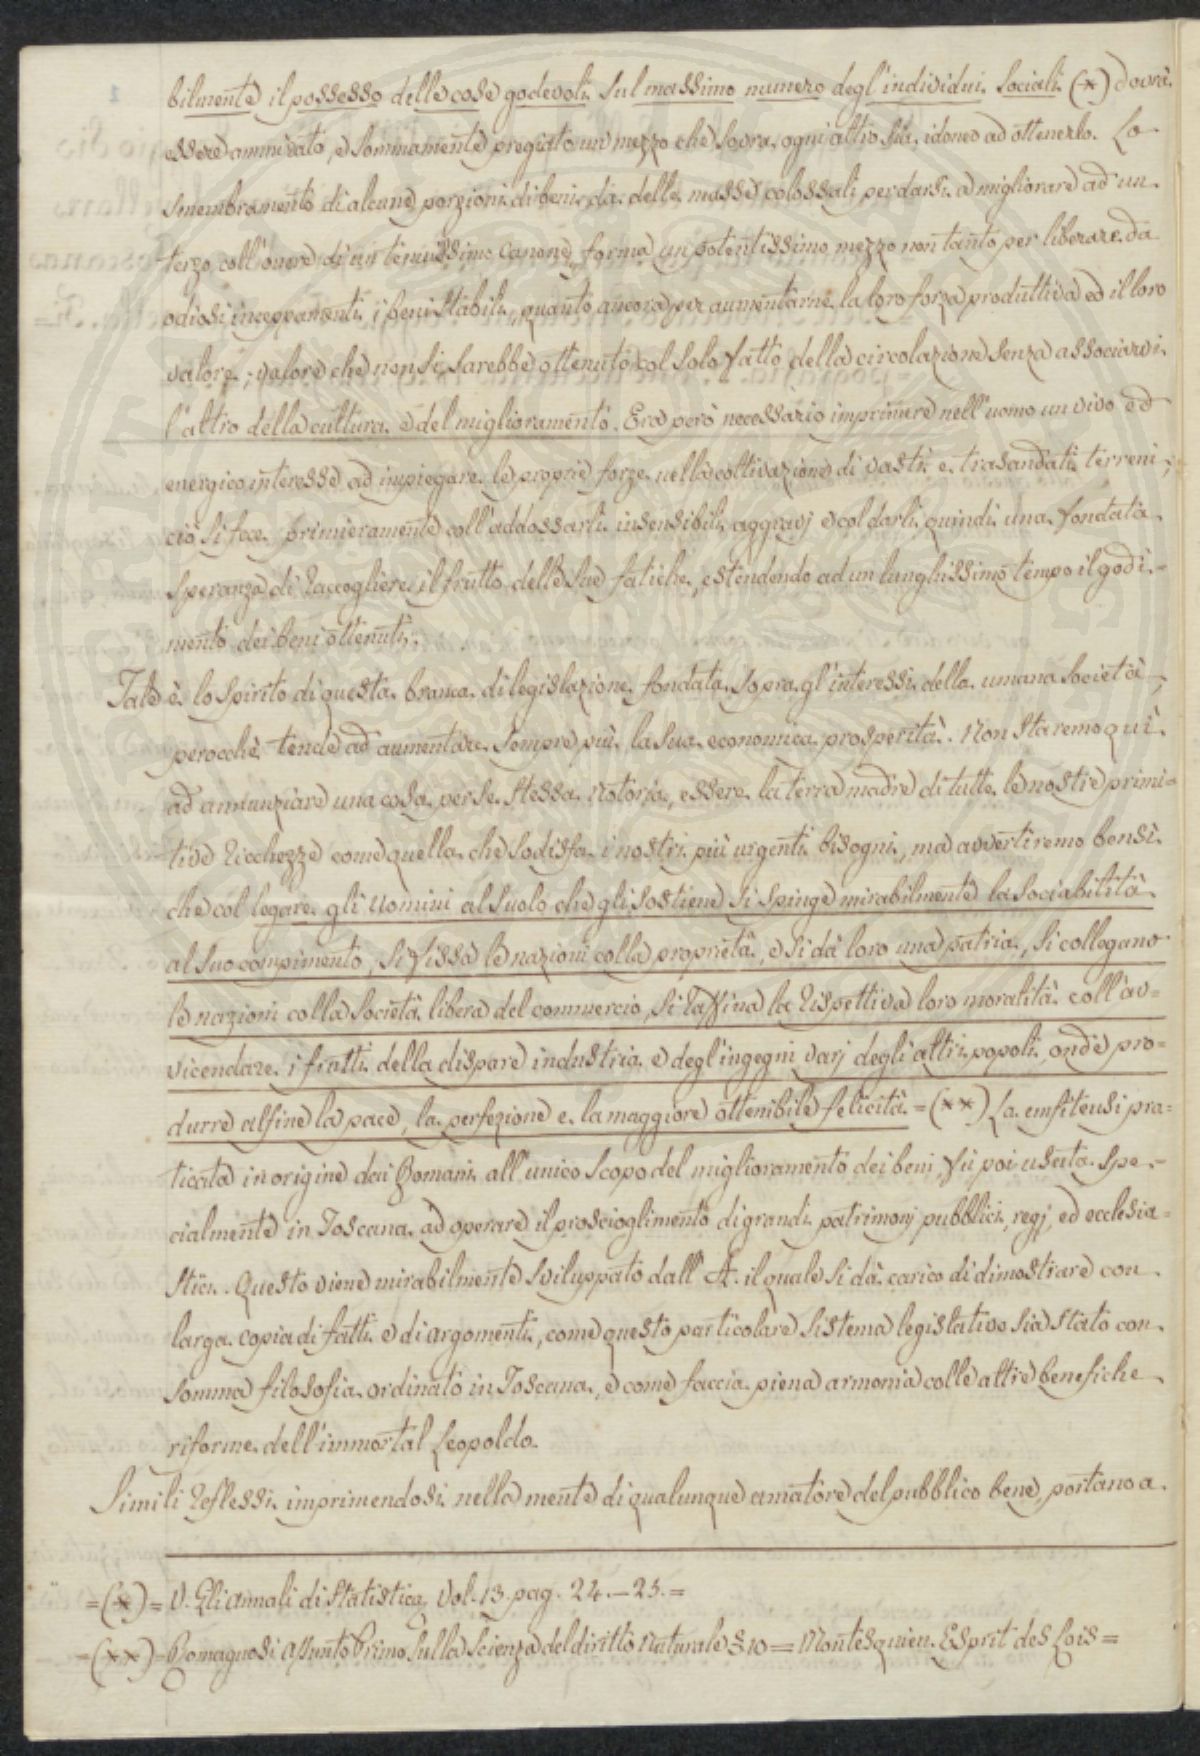 bilmente il possesso delle cose godevoli sul massimo numero degl'individui sociali (*) dovrà
essere ammirato, e sommamente pregiato un mezzo che sovra ogni altro sia idoneo ad ottenerlo. Lo
smembramento di alcune porzioni di beni da delle masse colossali per darsi a migliorare ad un
terzo coll'onere di un tenuissimo canone, forma un potentissimo mezzo non tanto per liberare da
odiosi inceppamenti i beni stabili, quanto ancora per aumentarne la loro forza produttiva ed il loro
valore; valore che non si sarebbe ottenuto col solo fatto della circolazione senza associarvi
l'altro della cultura e del miglioramento. Era però necessario imprimere nell'uomo un vivo ed
energico interesse ad impiegare le proprie forze nella coltivazione di vasti e trasandati terreni;
ciò si fece primieramente coll'addossarli insensibili aggravj e col darli quindi una fondata
speranza di raccogliere il frutto delle sue fatiche, estendendo ad un lunghissimo tempo il godi-
mento dei beni ottenuti.
Tale è lo spirito di questa branca di legislazione fondata sopra gl'interessi della umana società,
perocchè tende ad aumentare sempre più la sua economica prosperità. Non staremo quì
ad annunziare una cosa per se stessa notoria, essere la terra madre di tutte le nostre primi-
tive ricchezze come quella che sodisfa i nostri più urgenti bisogni, ma avvertiremo bensì
che col legare gli uomini al suolo che gli sostiene si spinge mirabilmente la sociabilità
al suo compimento, si fissa le nazioni colla proprietà, e si dà loro una patria, si collegano
le nazioni colla società libera del commercio, si raffina la rispettiva loro moralità coll'av-
vicendare i frutti della dispare industria e degl'ingegni varj degli altri popoli onde pro-
durre alfine la pace, la perfezione e la maggiore ottenibile felicità = (**) La enfiteusi pra-
ticata in origine dai Romani all'unico scopo del miglioramento dei beni, fù poi usata spe-
cialmente in Toscana ad operare il proscioglimento di grandi patrimonj pubblici, regj, ed ecclesia-
stici. Questo viene mirabilmente sviluppato dall'A. il quale si dà carico di dimostrare con
larga copia di fatti e di argomenti, come questo particolare sistema legislativo sia stato con
somma filosofia ordinato in Toscana, e come faccia piena armonia colle altre benefiche
riforme dell'immortal Leopoldo.
Simili reflessi imprimendosi nella mente di qualunque amatore del pubblico bene, portano a
=(*)= V. Gli annali di Statistica, Vol. 13. pag. 24.—25.=
=(**)= Romagnosi Assunto Primo sulla Scienza del diritto Naturale § 10 = Montesquieu. Esprit des Lois=